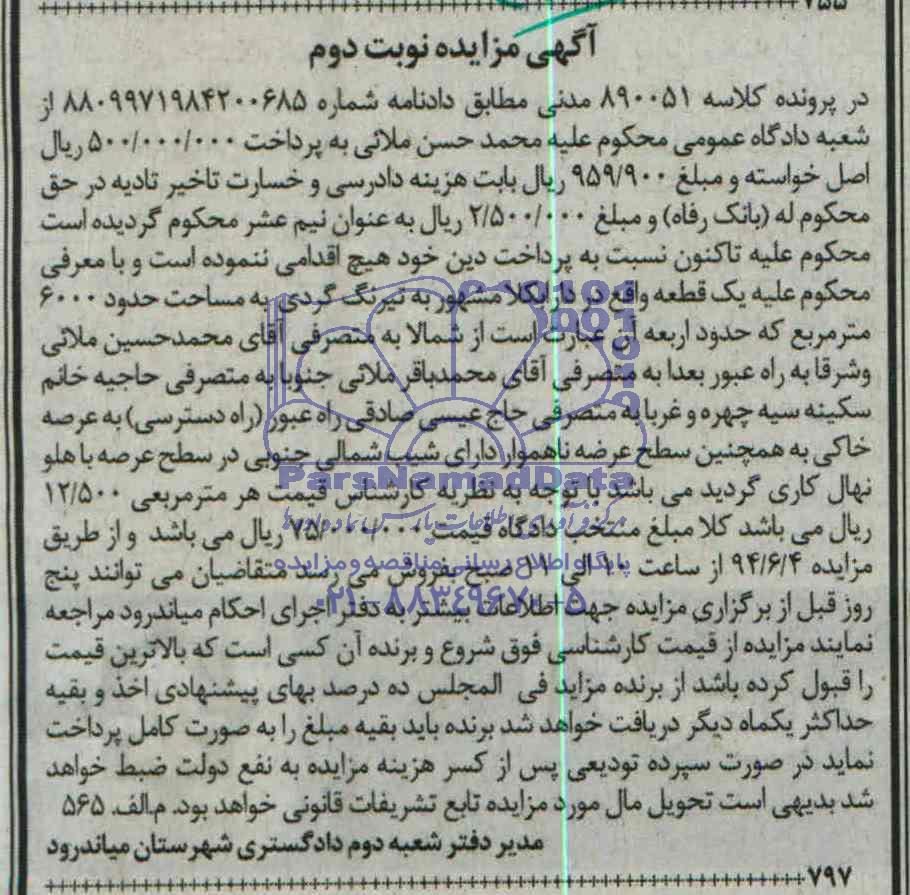 ۷۵۵
آگهی مزایده نوبت دوم
در پرونده کلاسه ۸۹۰۰۵۱ مدنی مطابق دادنامه شماره ۸۸۰۹۹۷۱۹۸۴۲۰۰۶۸۵ از
شعبه دادگاه عمومی محکوم علیه محمد حسن ملائی به پرداخت ۵۰۰/۰۰۰/۰۰۰ ریال
اصل خواسته و مبلغ ۹۵۹/۹۰۰ ریال بابت هزینه دادرسی و خسارت تاخیر تادیه در حق
محکوم له (بانک رفاه) و مبلغ ۲/۵۰۰/۰۰۰ ریال به عنوان نیم عشر محکوم گردیده است
محکوم علیه تاکنون نسبت به پرداخت دین خود هیچ اقدامی ننموده است و با معرفی
محکوم علیه یک قطعه واقع در دارابکلا مشهور به تیرنگ گردی به مساحت حدود ۶۰۰۰
مترمربع که حدود اربعه آن عبارت است از شمالا به متصرفی آقای محمدحسین ملائی
وشرقا به راه عبور بعدا به متصرفی آقای محمدباقر ملائی جنوبا به متصرفی حاجیه خانم
سکینه سیه چهره و غربا به متصرفی حاج عیسی صادقی راه عبور (راه دسترسی) به عرصه
خاکی به همچنین سطح عرضه ناهموار دارای شیب شمالی جنوبی در سطح عرصه با هلو
نهال کاری گردید می باشد با توجه به نظریه کارشناس قیمت هر مترمربعی ۱۲/۵۰۰
ریال می باشد کلا مبلغ منتخب دادگاه قیمت ۷۵/۰۰۰/۰۰۰ ریال می باشد و از طریق
مزایده ۹۴/۶/۴ از ساعت ۱۰ الی ۱۱ صبح بفروش می رسد متقاضیان می توانند پنج
روز قبل از برگزاری مزایده جهت اطلاعات بیشتر به دفتر اجرای احکام میاندرود مراجعه
نمایند مزایده از قیمت کارشناسی فوق شروع و برنده آن کسی است که بالاترین قیمت
را قبول کرده باشد از برنده مزاید فی المجلس ده درصد بهای پیشنهادی اخذ و بقیه
حداکثر یکماه دیگر دریافت خواهد شد برنده باید بقیه مبلغ را به صورت کامل پرداخت
نماید در صورت سپرده تودیعی پس از کسر هزینه مزایده به نفع دولت ضبط خواهد
شد بدیهی است تحویل مال مورد مزایده تابع تشریفات قانونی خواهد بود. م.الف. ۵۶۵
مدیر دفتر شعبه دوم دادگستری شهرستان میاندرود
۷۹۷
ParsNamadData
پایگاه اطلاع رسانی مناقصه و مزایده
۰۲۱-۸۸۳۴۹۶۷۰-۵